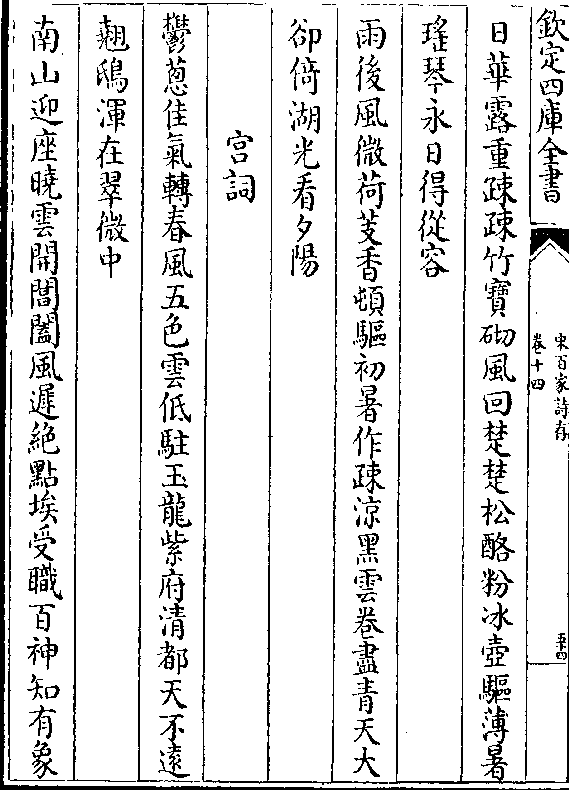 欽定四庫全書
宋百家詩存
卷十四
五十四
日華露重疎疎竹寶砌風回楚楚松酪粉冰壺驅薄暑
瑤琴永日得從容
雨後風微荷芰香頓驅初暑作疎涼黑雲卷盡青天大
卻倚湖光看夕陽
宫詞
鬱蔥佳氣轉春風五色雲低駐玉龍紫府清都天不遠
翹鴟渾在翠微中
南山迎座曉雲開閶闔風遲絶點埃受職百神知有象